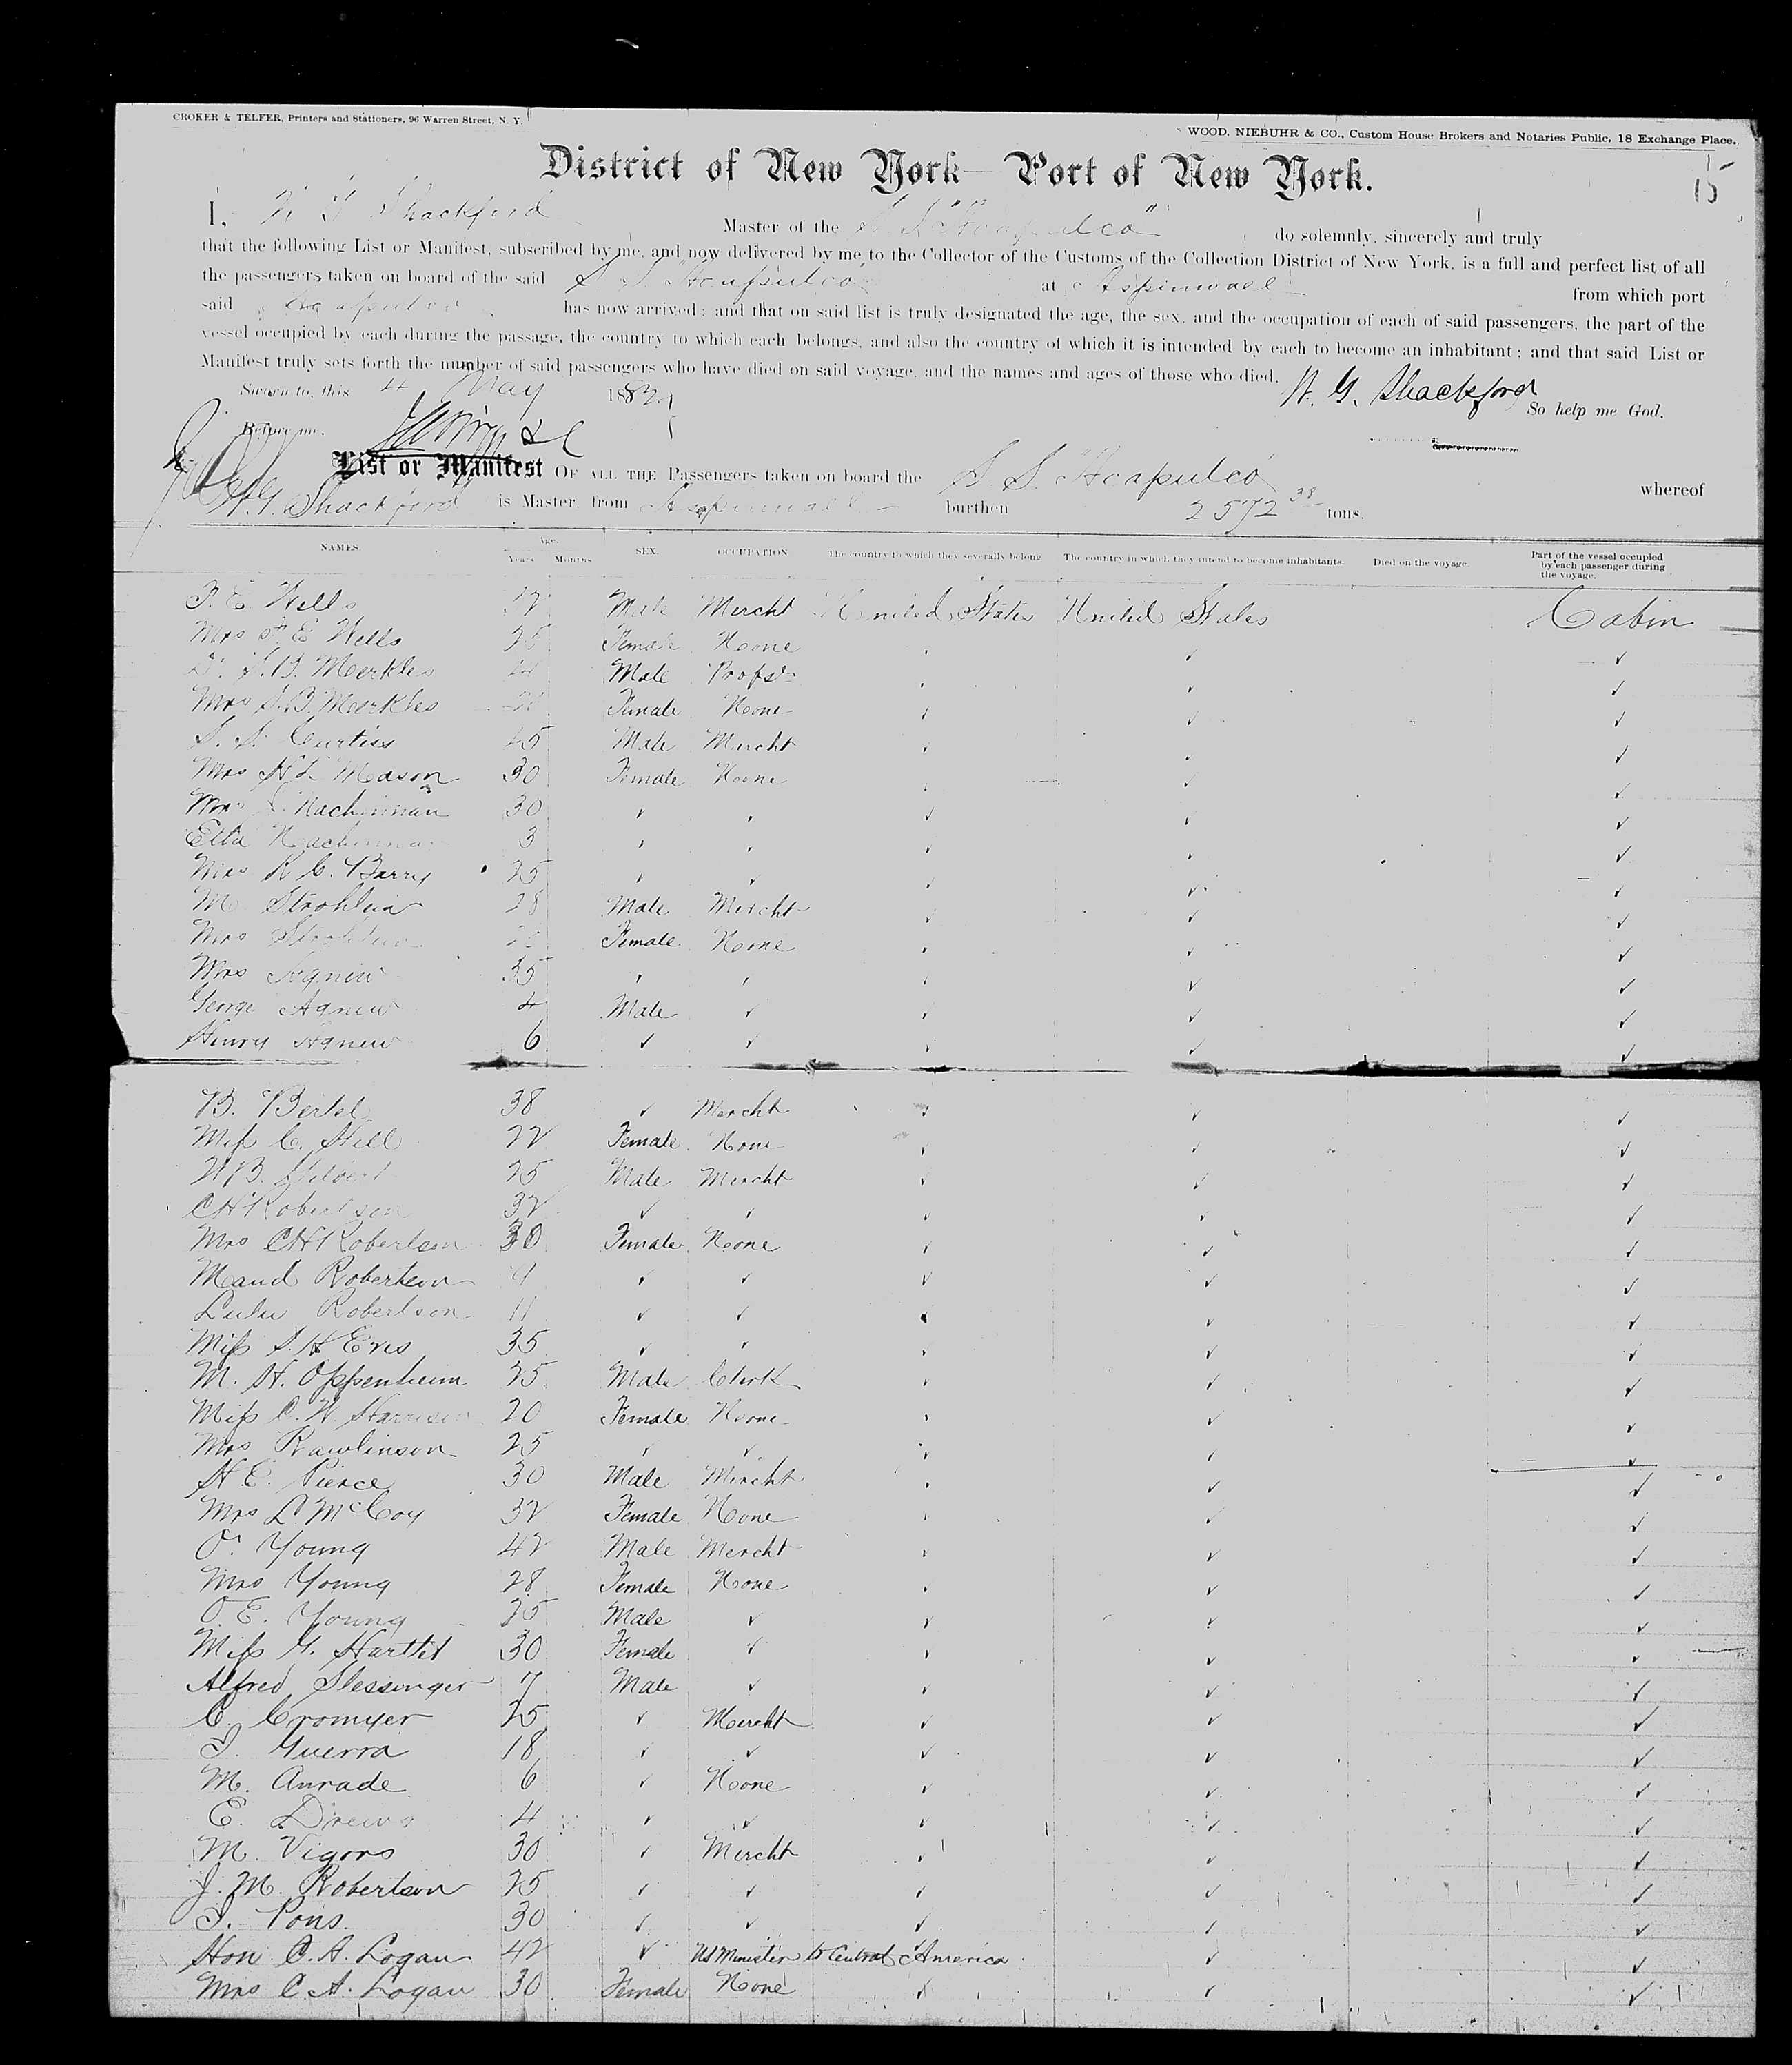 CROKER & TELFER, Printers and Stationers, 96 Warren Street, N. Y.
WOOD, NIEBUHR & CO., Custom House Brokers and Notaries Public, 18 Exchange Place.
District of New York Port of New York.
15
I, W G Shackford Master of the S. S. "Acapulco" do solemnly, sincerely and truly
that the following List or Manifest, subscribed by me, and now delivered by me to the Collector of the Customs of the Collection District of New York, is a full and perfect list of all
the passengers taken on board of the said S S Acapulco at Aspinwall from which port
said Acapulco has now arrived; and that on said list is truly designated the age, the sex, and the occupation of each of said passengers, the part of the
vessel occupied by each during the passage, the country to which each belongs, and also the country of which it is intended by each to become an inhabitant; and that said List or
Manifest truly sets forth the number of said passengers who have died on said voyage, and the names and ages of those who died.
Sworn to, this 4 May 1882 W. G. Shackford So help me God.
Before me,
List or Manifest OF ALL THE Passengers taken on board the S. S. Acapulco whereof
W. G. Shackford is Master, from Aspinwall burthen 2572 38 tons.
NAMES. Age. Years Months SEX. OCCUPATION. The country to which they severally belong. The country in which they intend to become inhabitants. Died on the voyage. Part of the vessel occupied by each passenger during the voyage.
F. E. Wells Male Mercht United States United States Cabin
Mrs F. E Wells 25 Female None
S. B. Merkles Male Profsr
Mrs S. B. Merkles Female None
S. S. Curtiss 45 Male Mercht
Mrs H L Mason 30 Female None
Mrs Nachinman 30
Etta Nachinman 3
Mrs K C. Barry 25
M Strohlein 28 Male Mercht
Mrs Strohlein Female None
Mrs Agnew 35
George Agnew 4 Male
Henry Agnew 6
B. Bertel 38 Mercht
Miss C. Hill 22 Female None
W B. 25 Male Mercht
C H Robertson 32
Mrs C H Robertson 30 Female None
Maud Robertson 9
Lulu Robertson 11
Miss S. H Eves 35
M. H. Oppenheim 25 Male Clerk
Miss C. W Harrison 20 Female None
Mrs Rawlinson 25
H. E. Pierce 30 Male Mercht
Mrs L. McCoy 32 Female None
O. Young 42 Male Mercht
Mrs Young 28 Female None
O. E. Young 25 Male
Miss G. Harttet 30 Female
Alfred Slessenger 7 Male
C. Cromyer 25 Mercht
J. Guerra 18
M. Anrade 6 None
E. Drews 4
M. Vigors 30 Mercht
J. M. Robertson 25
J. Pons 30
Hon C. A. Logan 42 US Minister to Central America
Mrs C A. Logan 30 Female None